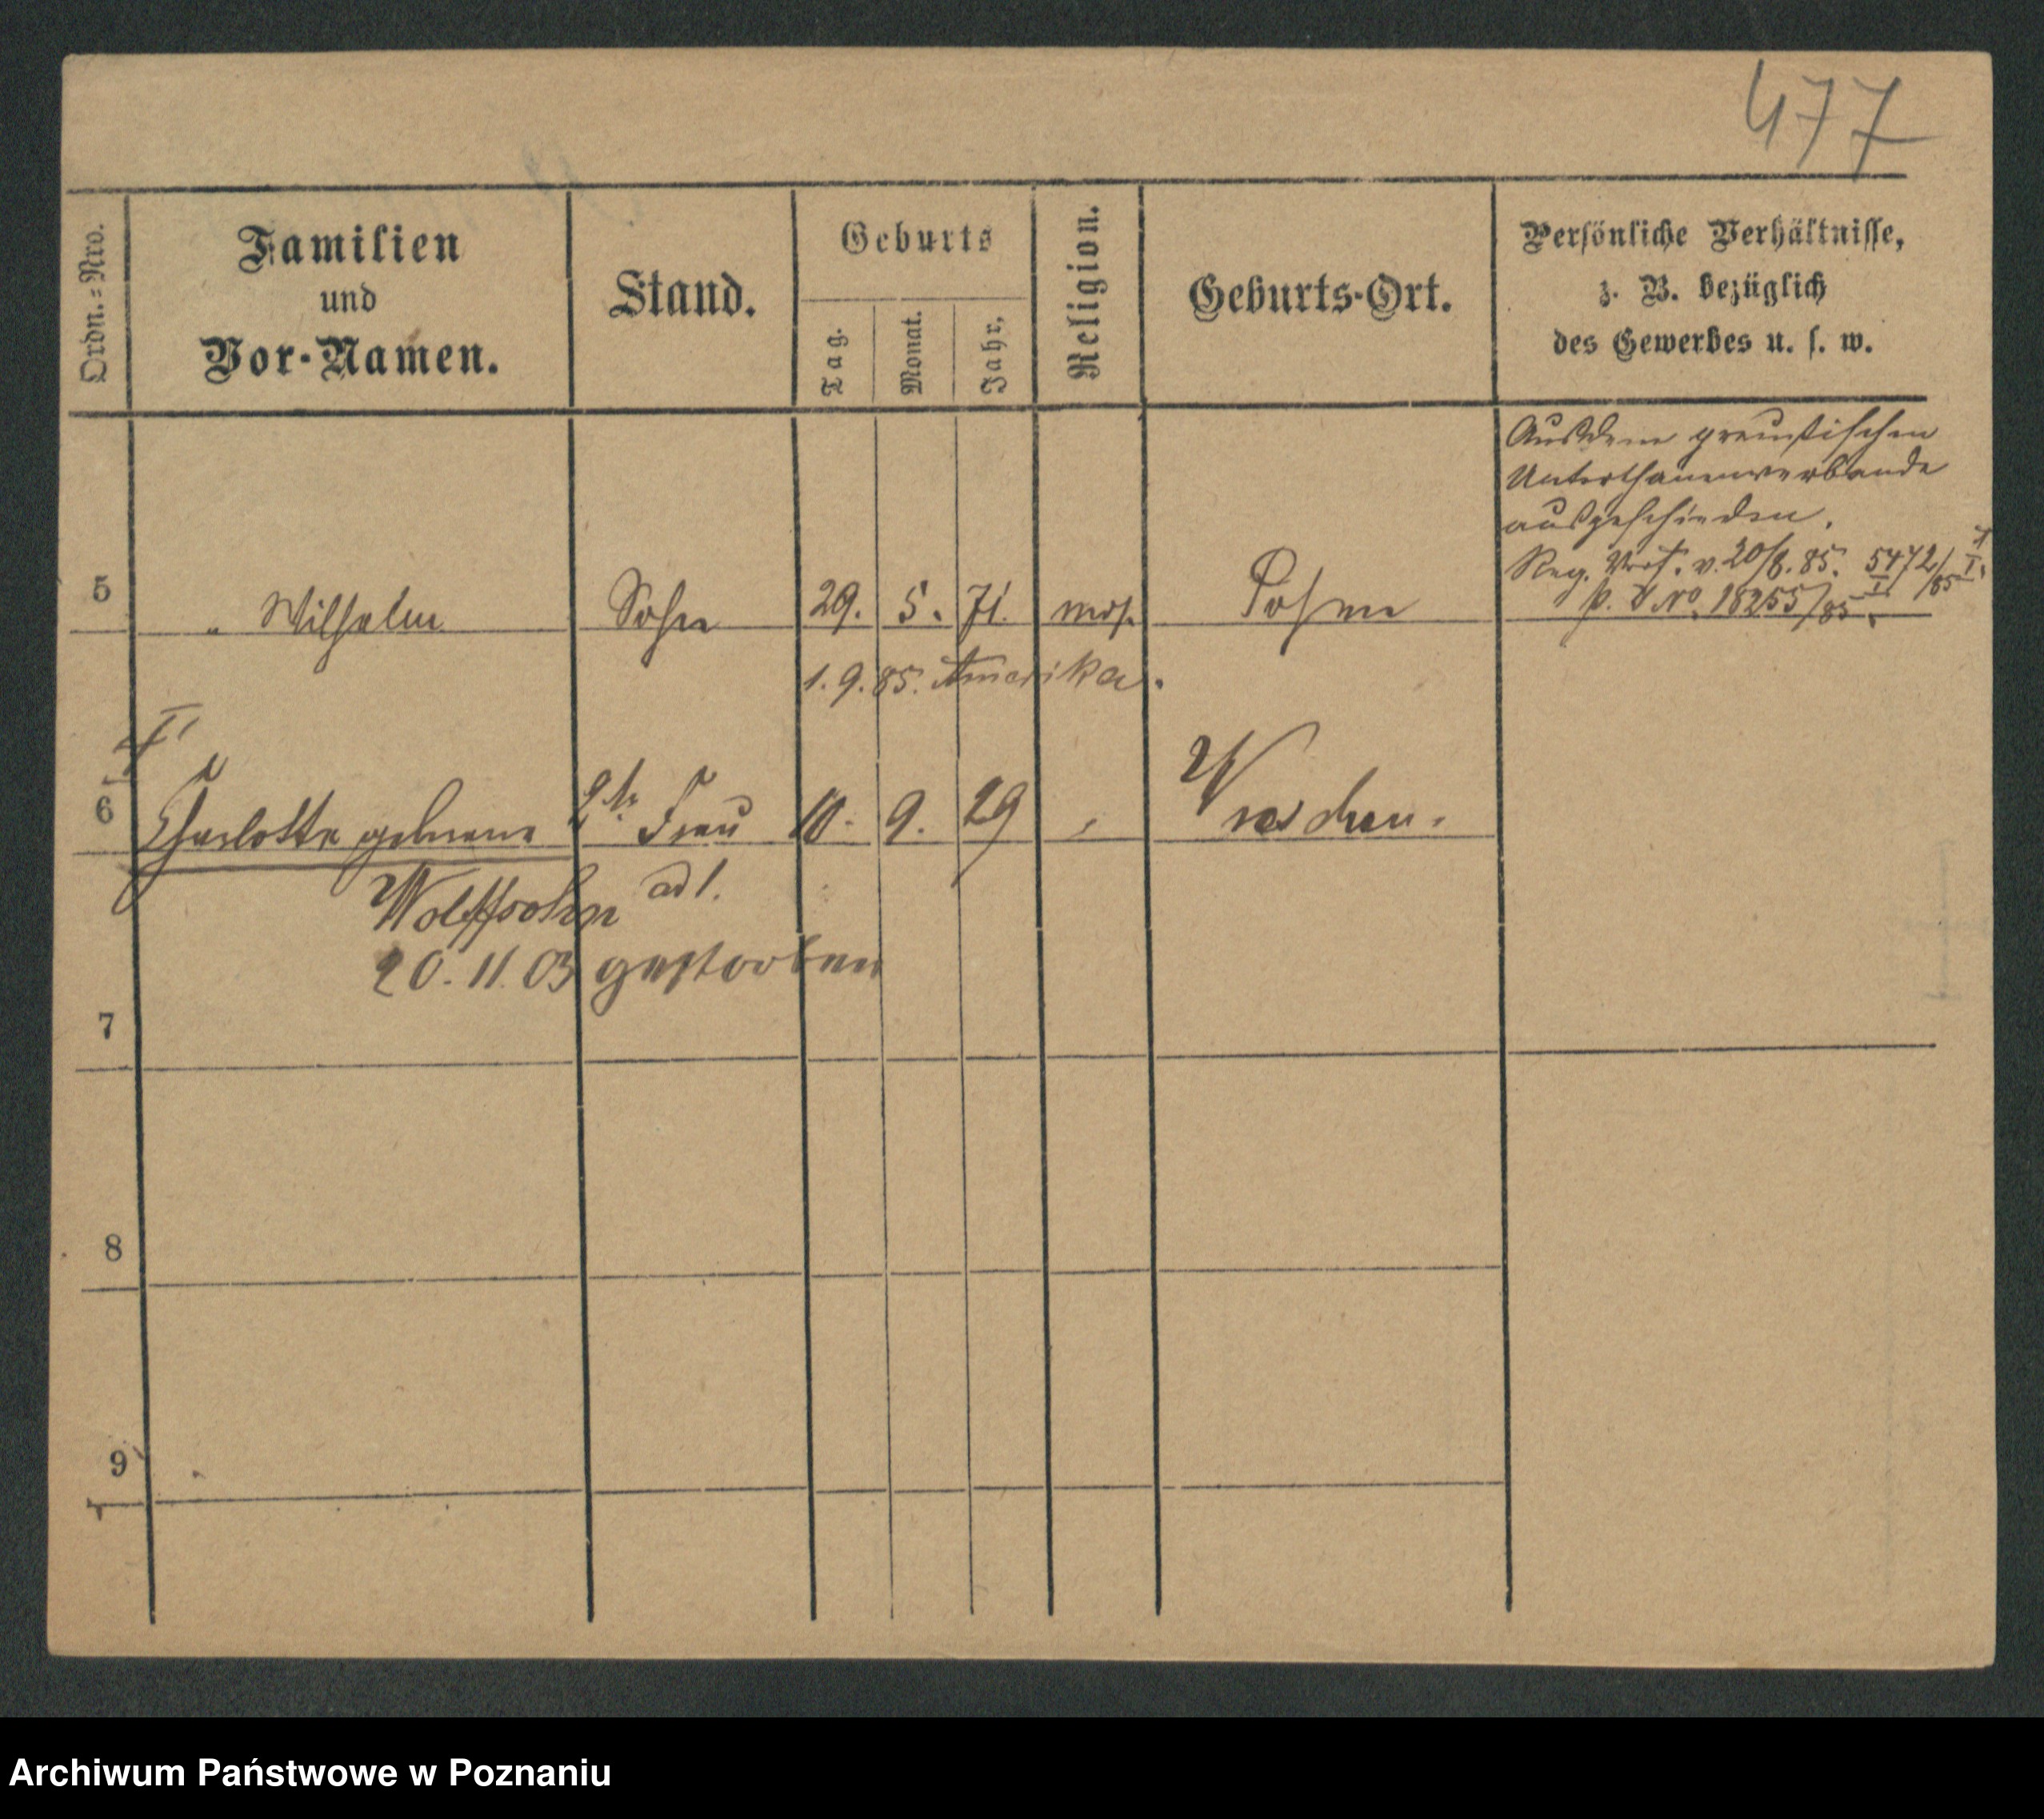 477
Ordn.=Nro.
Familien
und
Vor-Namen.
Stand.
Geburts
Tag.
Monat.
Jahr.
Religion.
Geburts-Ort.
Persönliche Verhältnisse,
z. B. bezüglich
des Gewerbes u. s. w.
Aus dem preußischen
Unterthanenverbande
ausgeschieden.
Reg. Verf. v. 20/8. 85. 5472/85 I.
P. J No. 18255/85 I.
5 " Wilhelm Sohn 29. 5. 71. mos. Posen
1. 9. 85. Amerika.
II
6 Charlotte geborene Frau 10. 9. 29 " Wreschen.
Wolffsohn ad 1.
20. 11. 03 gestorben
7
8
9
Archiwum Państwowe w Poznaniu